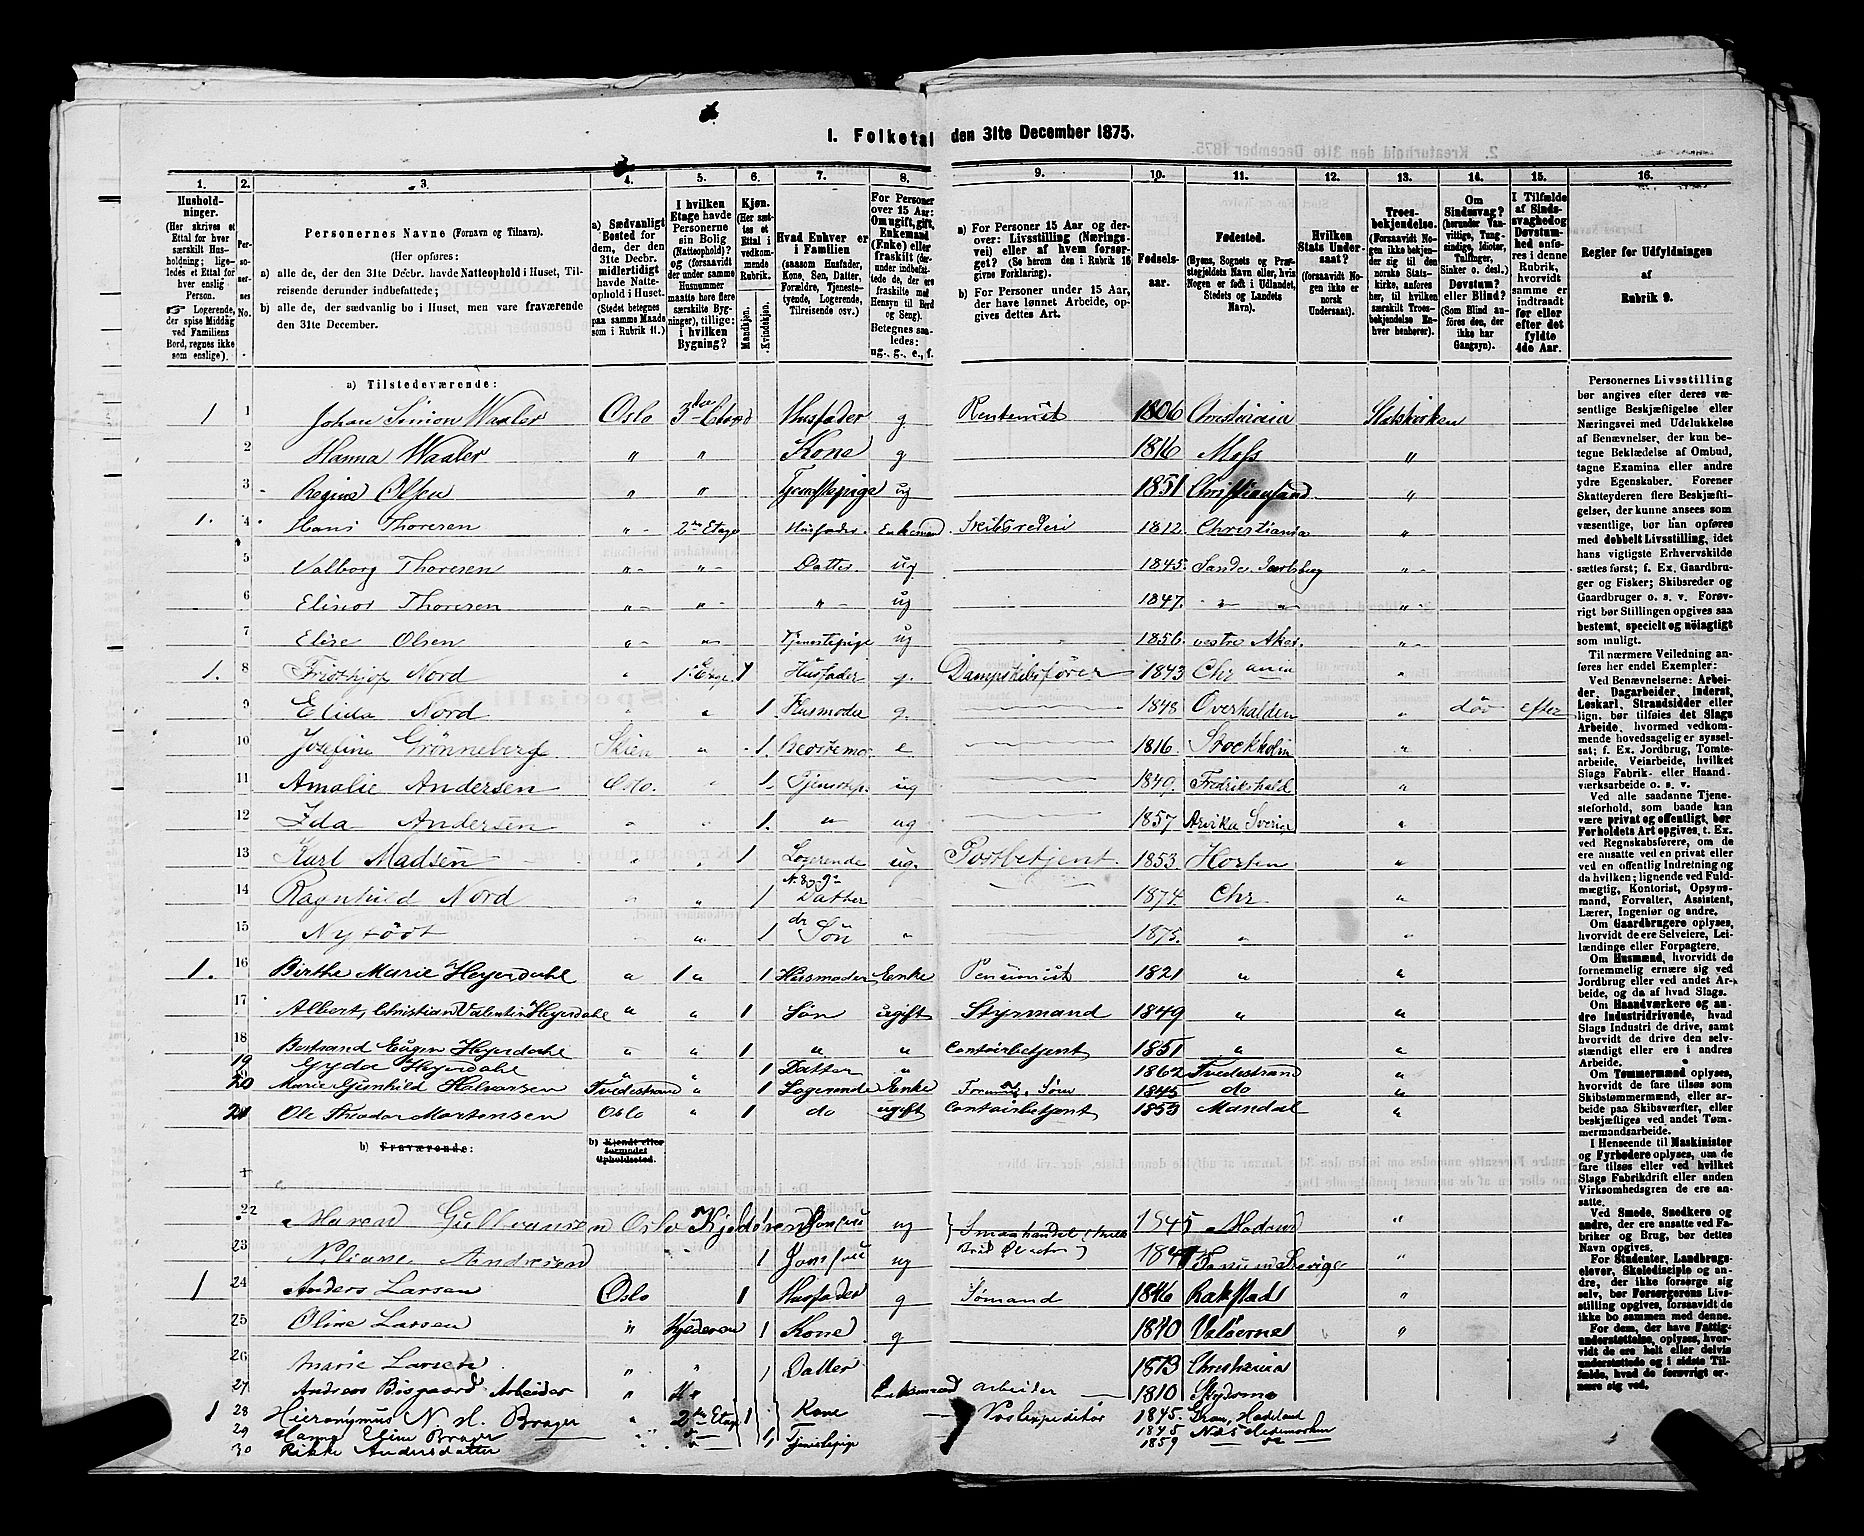 1. Folketal den 31te December 1875.
1. 2. 3. 4. 5. 6. 7. 8. 9. 10. 11. 12. 13. 14. 15. 16.
Hushold-
ninger.
(Her skrives et
Ettal for hver
særskilt Hus-
holdning; lige-
ledes et Ettal for
hver enslig
Person.
Logerende,
der spise Middag
ved Familiens
Bord, regnes ikke
som enslige).
Per-
so-
ner-
nes
No.
Personernes Navne (Fornavn og Tilnavn).
(Her opføres:
a) alle de, der den 31te Decbr. havde Natteophold i Huset, Til-
reisende derunder indbefattede;
b) alle de, der sædvanlig bo i Huset, men vare fraværende
den 31te December.
a) Sædvanligt
Bosted for
dem, der den
31te Decbr.
midlertidigt
havde Natte-
ophold i Huset.
(Steds betegnes
paa samme Maade
som i Rubrik 11.)
I hvilken
Etage havde
Personerne
sin Bolig
(Natteophold)?
og (forsaavidt
der under samme
Husnummer
maatte høre flere
særskilte Byg-
ninger), tillige:
i hvilken
Bygning?
Kjøn.
(Her sæt-
tes et
Ettal i
vedkom-
mende
Rubrik.
Mandkjøn.
Kvindekjøn.
Hvad Enhver er
i Familien
(saasom Husfader,
Kone, Søn, Datter,
Forældre, Tjeneste-
tyende, Logerende,
Tilreisende osv.)
For Personer
over 15 Aar:
Om ugift, gift,
Enkemand
(Enke) eller
fraskilt (der-
under indbefat-
tede de, der ere
fraskilte med
Hensyn til Bord
og Seng).
Betegnes saa-
ledes:
ug., g., e., f.
a) For Personer 15 Aar og der-
over: Livsstilling (Nærings-
vei) eller af hvem forsør-
get? (Se herom den i Rubrik 16
givne Forklaring).
b) For Personer under 15 Aar,
der have lønnet Arbeide, op-
gives dettes Art.
Fødsels-
aar.
Fødested.
(Byens, Sognets og Præ-
stegjeldets Navn eller, hvis
Nogen er født i Udlandet,
Stedets og Landets
Navn).
Hvilken
Stats Under-
saat?
(forsaavidt No-
gen ikke er
norsk
Undersaat).
Troes-
bekjendelse.
(Forsaavidt No-
gen ikke bekjen-
der sig til den
norske Stats-
kirke, anføres
her, til hvilken
særskilt Troes-
bekjendelse En-
hver benhører).
Om
Sindssvag?
(herunder Van-
vittige, Tung-
sindige, Idioter,
Tullinger,
Sinker o. desl.)
Døvstum?
eller Blind?
(Som Blind an-
føres den, der
ikke har
Gangsyn).
I Tilfælde
af Sinds-
svaghed og
Døvstum-
hed anfø-
res i denne
Rubrik,
hvorvidt
samme er
indtraadt
før eller
efter det
fyldte
4de Aar.
Regler for Udfyldningen
af
Rubrik 9.
a) Tilstedeværende:
1 1 Johan Simon Waaler Oslo 3die Etage Husfader g Rentenist 1806 Christiania Statskirken
2 Hanna Waaler " " Kone g 1816 Moss "
3 Regine Olsen " " Tjenstepige ug 1851 Christiansand "
1. 4 Hans Thoresen " 2den Etage Husfader Enkemand Skibsrederi 1812 Christiania "
5 Valborg Thoresen " " Datter ug 1845 Sande Jarlsberg "
6 Elinor Thoresen " " " ug 1847 " " "
7 Elise Olsen " " Tjenestepige ug 1856 vestre Aker "
1. 8 Fridthjof Nord " 1 Etage 1 Husfader g. Dampskibsfører 1843 Chrania "
9 Elida Nord " 1 Husmoder g. 1848 Overhalden " døv efter
10 Josefine Grønneberg Skien " 1 Bedstemo e 1816 Stockholm "
11 Amalie Andersen Oslo " 1 Tjenestep. ug 1840 Fredrikshald "
12 Ida Andersen " " 1 " ug 1857 Arvika Sverig "
13 Karl Madsen " " 1 Logerende ug. Postbetjent 1853 Horten "
14 Ragnhild Nord " " 1 N. 8 og 9s Datter 1874 Chr "
15 Nyfødt " 1 do Søn " 1875 " "
1. 16 Birthe Marie Heyerdahl " 1 " 1 Husmoder Enke Pensionist 1821 " "
17 Albert Christian Valentin Heyerdahl " " 1 Søn ugift Styrmand 1849 " "
18 Bertrand Eugen Heyerdahl " " 1 " " Contoirbetjent 1851 " "
19 Gyda Heyerdahl " " 1 Datter " 1862 Tvedestrand "
20 Marie Gunhild Halvorsen Tvedestrand " 1 Logerende Enke 1845 do "
21 Ole Theodor Mortensen Oslo " 1 do ugift Contoirbetjent 1853 Mandal "
b) Fraværende:
b) Kjendt eller
formodet
Opholdssted.
22 Maren Gulbransen Oslo Kjederen Jomfru ug Smaahandel 1845 "
23 Andresen " 1 Jomfru ug "
1 24 Anders Larsen Oslo 1 Husfader g Sømand 1846 Rakstads "
25 Oline Larsen " Kjederen 1 Kone g 1840 Valøerne "
26 Marie Larsen " " 1 Datter 1873 Christiania
27 Andreas Bisgaard Arbeider " Enkemand arbeider 1810
1 28 Hieronymus N. H. Brager " 2den Etage 1 1845 Gran, Hadeland
29 Hanna Eline Brager " " 1 Kone 1845 Næs Hedemarken
30 Rikke Andersdatter " " 1 Tjenestepige 1859
Personernes Livsstilling
bør angives efter deres væ-
sentlige Beskjæftigelse eller
Næringsvei med Udelukkelse
af Benævnelser, der kun be-
tegne Beklædelse af Ombud,
tagne Examina eller andre
ydre Egenskaber. Forener
Skatteyderen flere Beskjæfti-
gelser, der kunne ansees som
væsentlige, bør han opføres
med dobbelt Livsstilling, idet
hans vigtigste Erhvervskilde
sættes først; f. Ex. Gaardbru-
ger og Fisker; Skibsreder og
Gaardbruger o. s. v. Forøv-
rigt bør Stillingen opgives saa
bestemt, specielt og nøiagtigt
som muligt.
Til nærmere Veiledning an-
føres her endel Exempler:
Ved Benævnelserne: Arbei-
der, Dagarbeider, Inderst,
Løskarl, Strandsidder eller
lign. bør tilføies det Slags
Arbeide, hvormed vedkom-
mende hovedsagelig er syssel-
sat; f. Ex. Jordbrug, Tomte-
arbeide, Veiarbeide, hvilket
Slags Fabrik- eller Haand-
værksarbeide o. s. v.
Ved alle saadanne Tjene-
steforhold, som baade kan
være privat og offentligt, bør
Forholdets Art opgives, t. Ex.
ved Regnskabsførere, om de
ere ansatte ved en privat eller
ved en offentlig Indretning og
da hvilken; lignende ved Fuld-
mægtig, Kontorist, Opsyns-
mand, Forvalter, Assistent,
Lærer, Ingeniør og andre.
Om Gaardbrugere oplyses,
hvorvidt de ere Selveiere, Lei-
lændinge eller Forpagtere.
Om Husmænd, hvorvidt de
fornemmelig ernære sig ved
Jordbrug eller ved andet Ar-
beide, og da af hvad Slags.
Om Haandværkere og an-
dre Industridrivende, hvad
Slags Industri de drive, samt
hvorvidt de drive den selv-
stændigt eller ere i andres
Arbeide.
Om Tømmermænd oplyses,
hvorvidt de fare tilsøs som
Skibstømmermænd, eller ar-
beide paa Skibsværfter, eller
beskjæftiges ved andet Tøm-
mermandsarbeide.
I Henseende til Maskinister
og Fyrbødere oplyses, om de
fare tilsøs eller ved hvilket
Slags Fabrikdrift eller anden
Virksomhedsgren de ere an-
satte.
Ved Smede, Snedkere og
andre, der ere ansatte ved Fa-
briker og Brug, bør dettes
Navn opgives.
For Studenter, Landbrugs-
elever, Skoledisciple og an-
dre, der ikke forsørge sig
selv, bør Forsørgerens Livs-
stilling opgives, forsaavidt de
ikke bo sammen med denne.
For dem, der have Fattig-
understøttelse, oplyses, hvor-
vidt de ere helt eller delvis
understøttede og i sidste Til-
fælde, hvad de forøvrigt er-
nære sig ved.